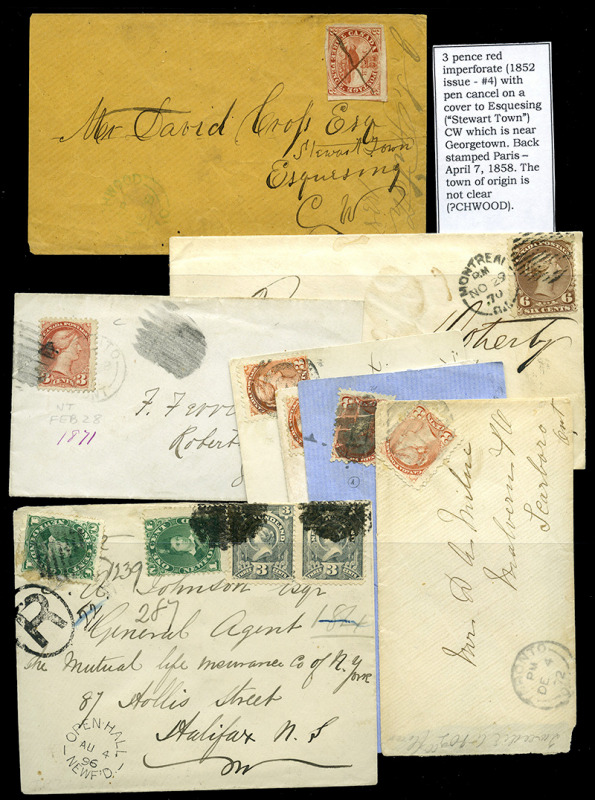 3 pence red
imperforate (1852
issue - #4) with
pen cancel on a
cover to Esquesing
("Stewart Town")
CW which is near
Georgetown. Back
stamped Paris –
April 7, 1858. The
town of origin is
not clear
(?CHWOOD).
Mr David Cross Esq
Stewart Town
Esquesing
C W
MONTREAL
PM
NO 29
70
6 SIX CENTS 6
Doherty
3 CENTS 3
NT
FEB 28
1871
F. Ferri
Robert
3
3
Mrs D A Milne
Malvern P.O.
Scarboro
Ont
TORONTO
PM
DE 4
1239
Johnson Esqr
287
General Agent
R
the Mutual life Insurance Co of N. York
87 Hollis Street
Halifax N. S
OPEN HALL
AU 4
96
NEWF'D.